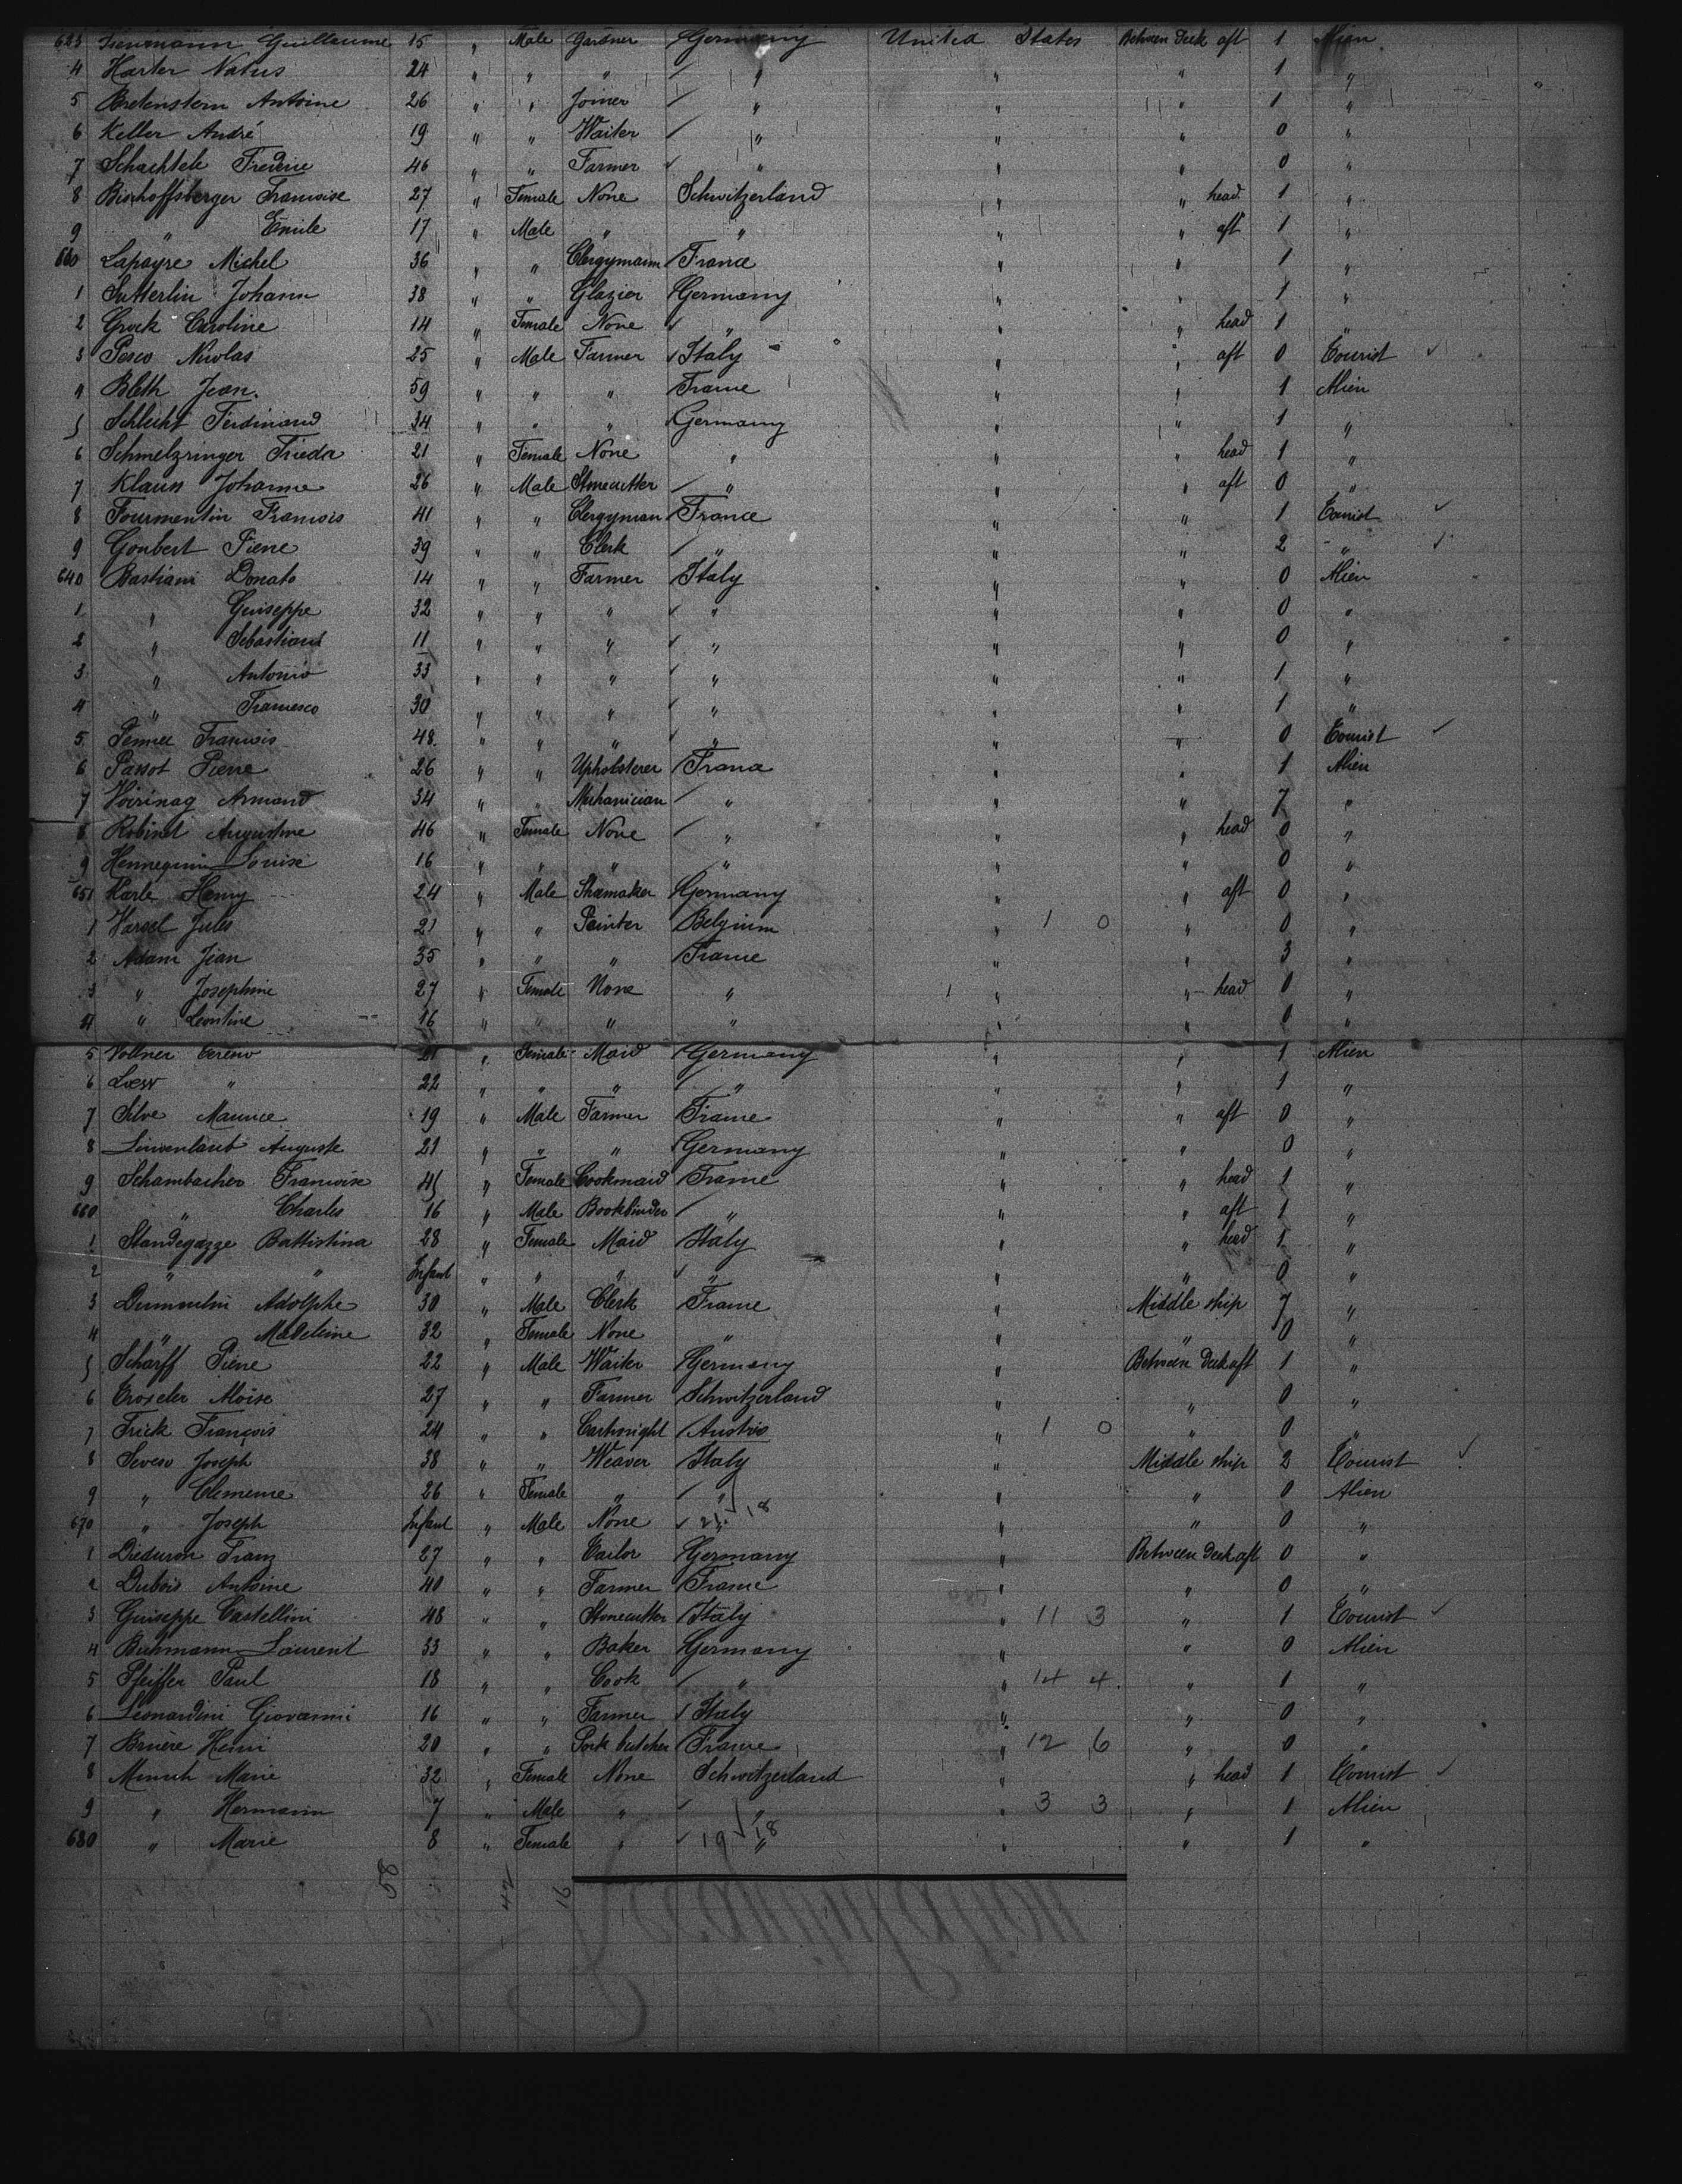 623 Guillaume 15 " Male Gardner Germany United States Between Deck aft 1 Alien
4 Harter Natus 24 " " " " " " 1 "
5 Bretenstern Antoine 26 " " Joiner " " " 1 "
6 Keller André 19 " " Waiter " " " 0 "
7 Schachtele Frederic 46 " " Farmer " " " 0 "
8 Bischoffsberger Francoise 27 " Female None Schwitzerland " " head 1 "
9 " Emile 17 " Male " " " " aft 1 "
630 Lapayre Michel 36 " " Clergymann France " " 1 "
1 Sutterlin Johann 38 " " Glazier Germany " " 1 "
2 Grock Caroline 14 " Female None " " " head 1 "
3 Pesco Nicolas 25 " Male Farmer Italy " " aft 0 Tourist
4 Bleth Jean 59 " " " France " " 1 Alien
5 Schlecht Ferdinand 34 " " " Germany " " 1 "
6 Schmelzringer Frieda 21 " Female None " " " head 1 "
7 Klauss Johanne 26 " Male Stonecutter " " " aft 0 "
8 Fourmentin Francois 41 " " Clergyman France " " 1 Tourist
9 Gonbert Pierre 39 " " Clerk " " " 2 "
640 Bastiani Donato 14 " " Farmer Italy " " 0 Alien
1 " Guiseppe 32 " " " " " " 0 "
2 " Sebastiano 11 " " " " " " 0 "
3 " Antonio 33 " " " " " " 1 "
4 " Francesco 30 " " " " " " 1 "
5 Francois 48 " " " " " " 0 Tourist
6 Passot Pierre 26 " " Upholsterer France " " 1 Alien
7 Armand 34 " " Mechanician " " " 7 "
8 Robinet Augustine 46 " Female None " " " head 0 "
9 Hennequin Louise 16 " " " " " " 0 "
651 Karle Henry 24 " Male Shoemaker Germany " " aft 0 "
1 Jules 21 " " Painter Belgium " 1 0 " 0 "
2 Adam Jean 35 " " " France " " 3 "
3 " Josephine 27 " Female None " " " head 0 "
4 " Leontine 16 " " " " " " 0 "
5 Vollner 21 " Female Maid Germany " " 1 Alien
6 Loew " 22 " " " " " " 1 "
7 Silve Maurice 19 " Male Farmer France " " aft 0 "
8 Auguste 21 " " " Germany " " 0 "
9 Schambacher Francoise 45 " Female Cookmaid France " " head 1 "
660 " Charles 16 " Male Bookbinder " " " aft 1 "
1 Standegazze Battistina 28 " Female Maid Italy " " head 1 "
2 " " Infant " " " " " " 0 "
3 Dumoulin Adolphe 30 " Male Clerk France " Middle ship 7 "
4 " Madeleine 32 " Female None " " " 0 "
5 Scharff Pierre 22 " Male Waiter Germany " Between Deck aft 1 "
6 Troxeler Moise 27 " " Farmer Schwitzerland " " 0 "
7 Frick François 24 " " Cartwright Austria " 1 0 " 0 "
8 Seveso Joseph 38 " " Weaver Italy " Middle ship 2 Tourist
9 " Clemence 26 " Female " " " " 0 Alien
670 " Joseph Infant " Male None " " " 0 "
1 Franz 27 " " Tailor Germany " Between Deck aft 0 "
2 Dubois Antoine 40 " " Farmer France " " 0 "
3 Guiseppe Castellini 48 " " Stonecutter Italy " 11 3 " 1 Tourist
4 Buhmann Laurent 33 " " Baker Germany " " 0 Alien
5 Pfeiffer Paul 18 " " Cook " " 14 4 " 1 "
6 Leonardini Giovanni 16 " " Farmer Italy " " 0 "
7 Bruère Henri 20 " " Pork butcher France " 12 6 " 0 "
8 Munch Marie 32 " Female None Schwitzerland " " head 1 Tourist
9 " Hermann 7 " Male " " " 3 3 " 1 Alien
680 " Marie 8 " Female " 19 18 " " " 1 "
58 42 16